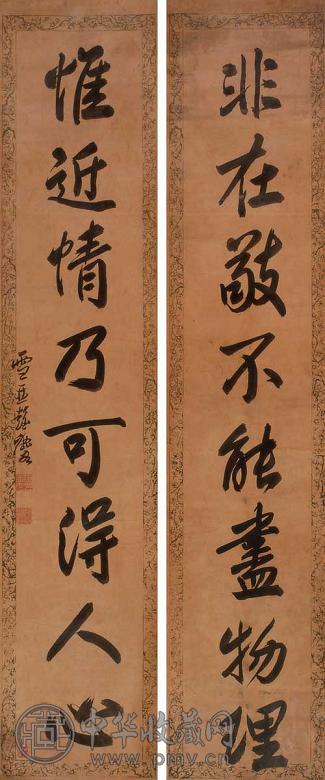 非在敬不能盡物理
惟近情乃可得人心
雪
中华收藏网
www.pmv.cn